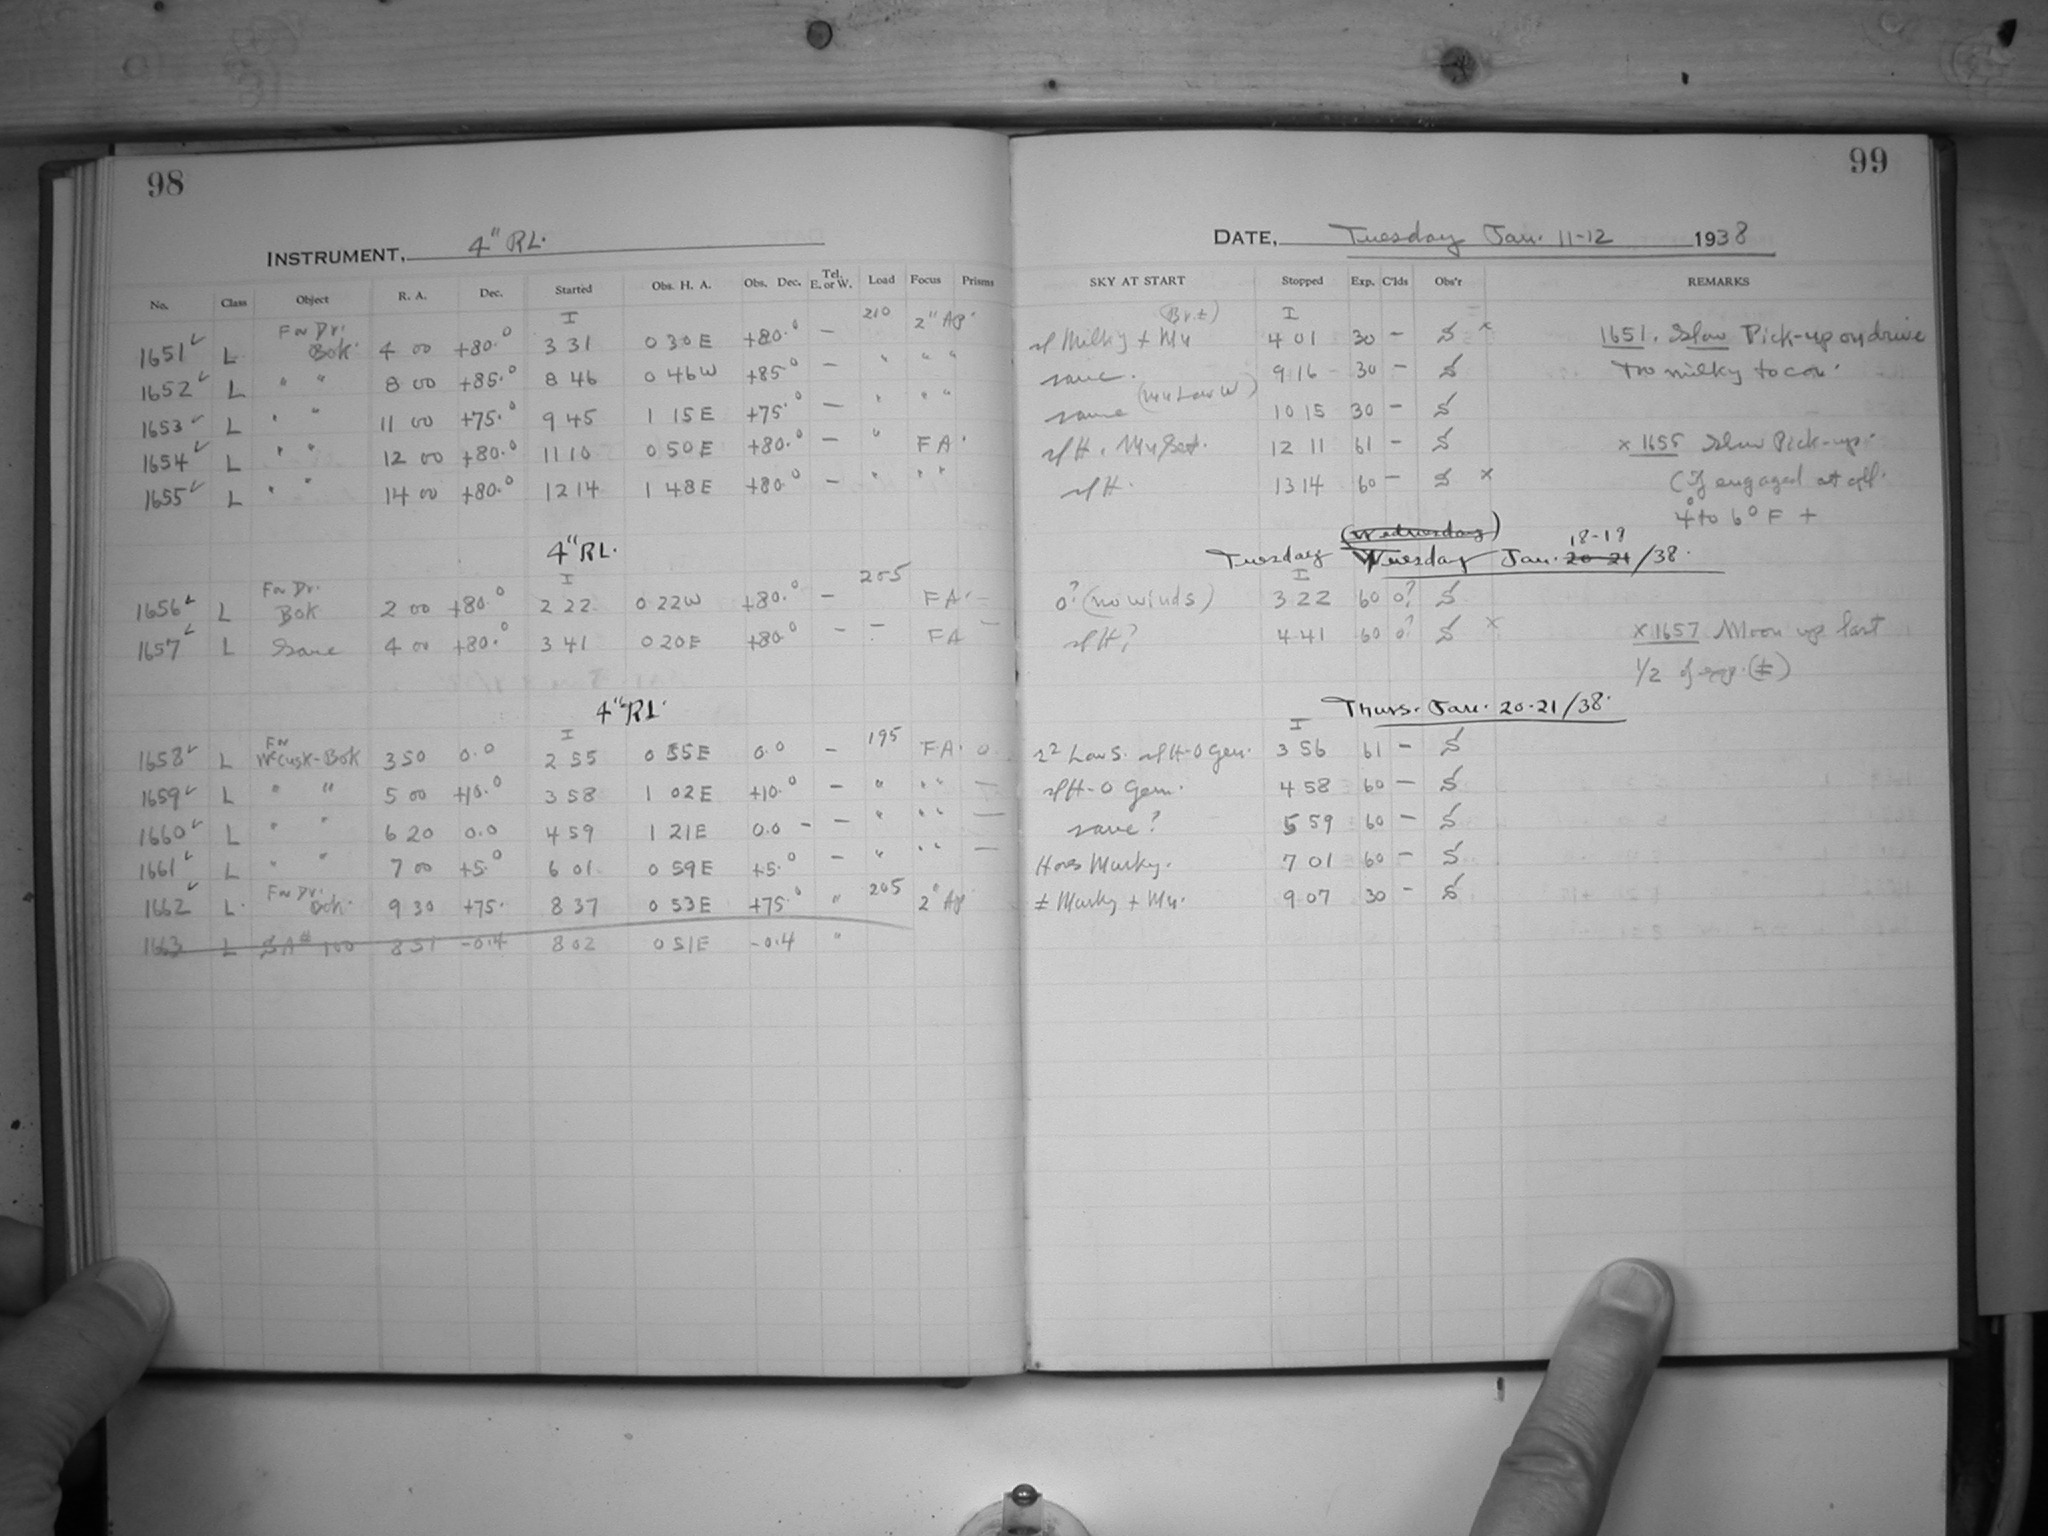 98
INSTRUMENT, 4" RL.
No. Class Object R. A. Dec. Started Obs. H. A. Obs. Dec. Tel. E. or W. Load Focus Prisms
I
1651 L For Dr. Bok. 4 00 +80.° 3 31 0 30 E +80.° — 210 2" Ap.
1652 L " " 8 00 +85.° 8 46 0 46 W +85° — " " "
1653 L " " 11 00 +75.° 9 45 1 15 E +75.° — " " "
1654 L " " 12 00 +80.° 11 10 0 50 E +80.° — " F A.
1655 L " " 14 00 +80.° 12 14 1 48 E +80.° — " " "
4" RL.
I
1656 L For Dr. Bok 2 00 +80.° 2 22 0 22 W +80.° — 205 F A. —
1657 L Same 4 00 +80.° 3 41 0 20 E +80.° — " F A —
4" RL.
I
1658 L For McCusk-Bok 3 50 0.0 2 55 0 55 E 0.0 — 195 F A. 0
1659 L " " 5 00 +10.° 3 58 1 02 E +10.° — " " " —
1660 L " " 6 20 0.0 4 59 1 21 E 0.0 — — " " " —
1661 L " " 7 00 +5.° 6 01 0 59 E +5.° — " " " —
1662 L. For Dr. Bok. 9 30 +75. 8 37 0 53 E +75.° " 205 2" Ap
1663 L SA# 100 8 51 -0.4 8 02 0 51 E -0.4 "
99
DATE, Tuesday Jan. 11-12 1938
SKY AT START Stopped Exp. C'lds Obs'r REMARKS
(Br.±) I
Milky + Mn 4 01 30 — S x 1651. Slow Pick-up on drive
same. 9 16 30 — S Too milky to con.
same (Mn Low W) 10 15 30 — S
H. Mn Set. 12 11 61 — S x 1655 Slow Pick-up.
H. 13 14 60 — S x (If engaged at off.
4° to 6° F +
(Wednesday)
Tuesday Tuesday Jan. 20-21 18-19 /38.
I
0? (no winds) 3 22 60 0? S
H? 4 41 60 0? S x x 1657 Moon up last
1/2 of exp. (±)
Thurs. Jan. 20-21/38.
I
Low S. H-0 Gem. 3 56 61 — S
H-0 Gem. 4 58 60 — S
same? 5 59 60 — S
Murky. 7 01 60 — S
± Murky + Mn. 9 07 30 — S